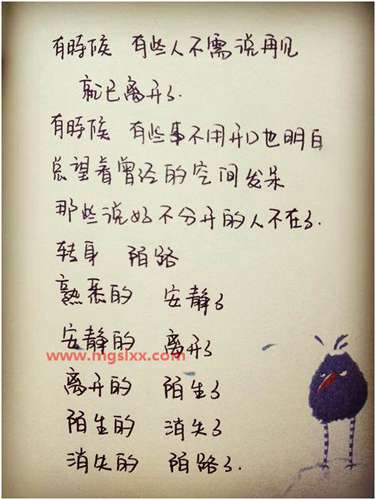 有時候 有些人不需说再见
就已离开了.
有時候 有些事不用开口也明白
总望着曾经的空间发呆
那些说好不分开的人不在了.
转身 陌路
熟悉的 安静了
安静的 离开了
www.mgslxx.com
离开的 陌生了
陌生的 消失了
消失的 陌路了.